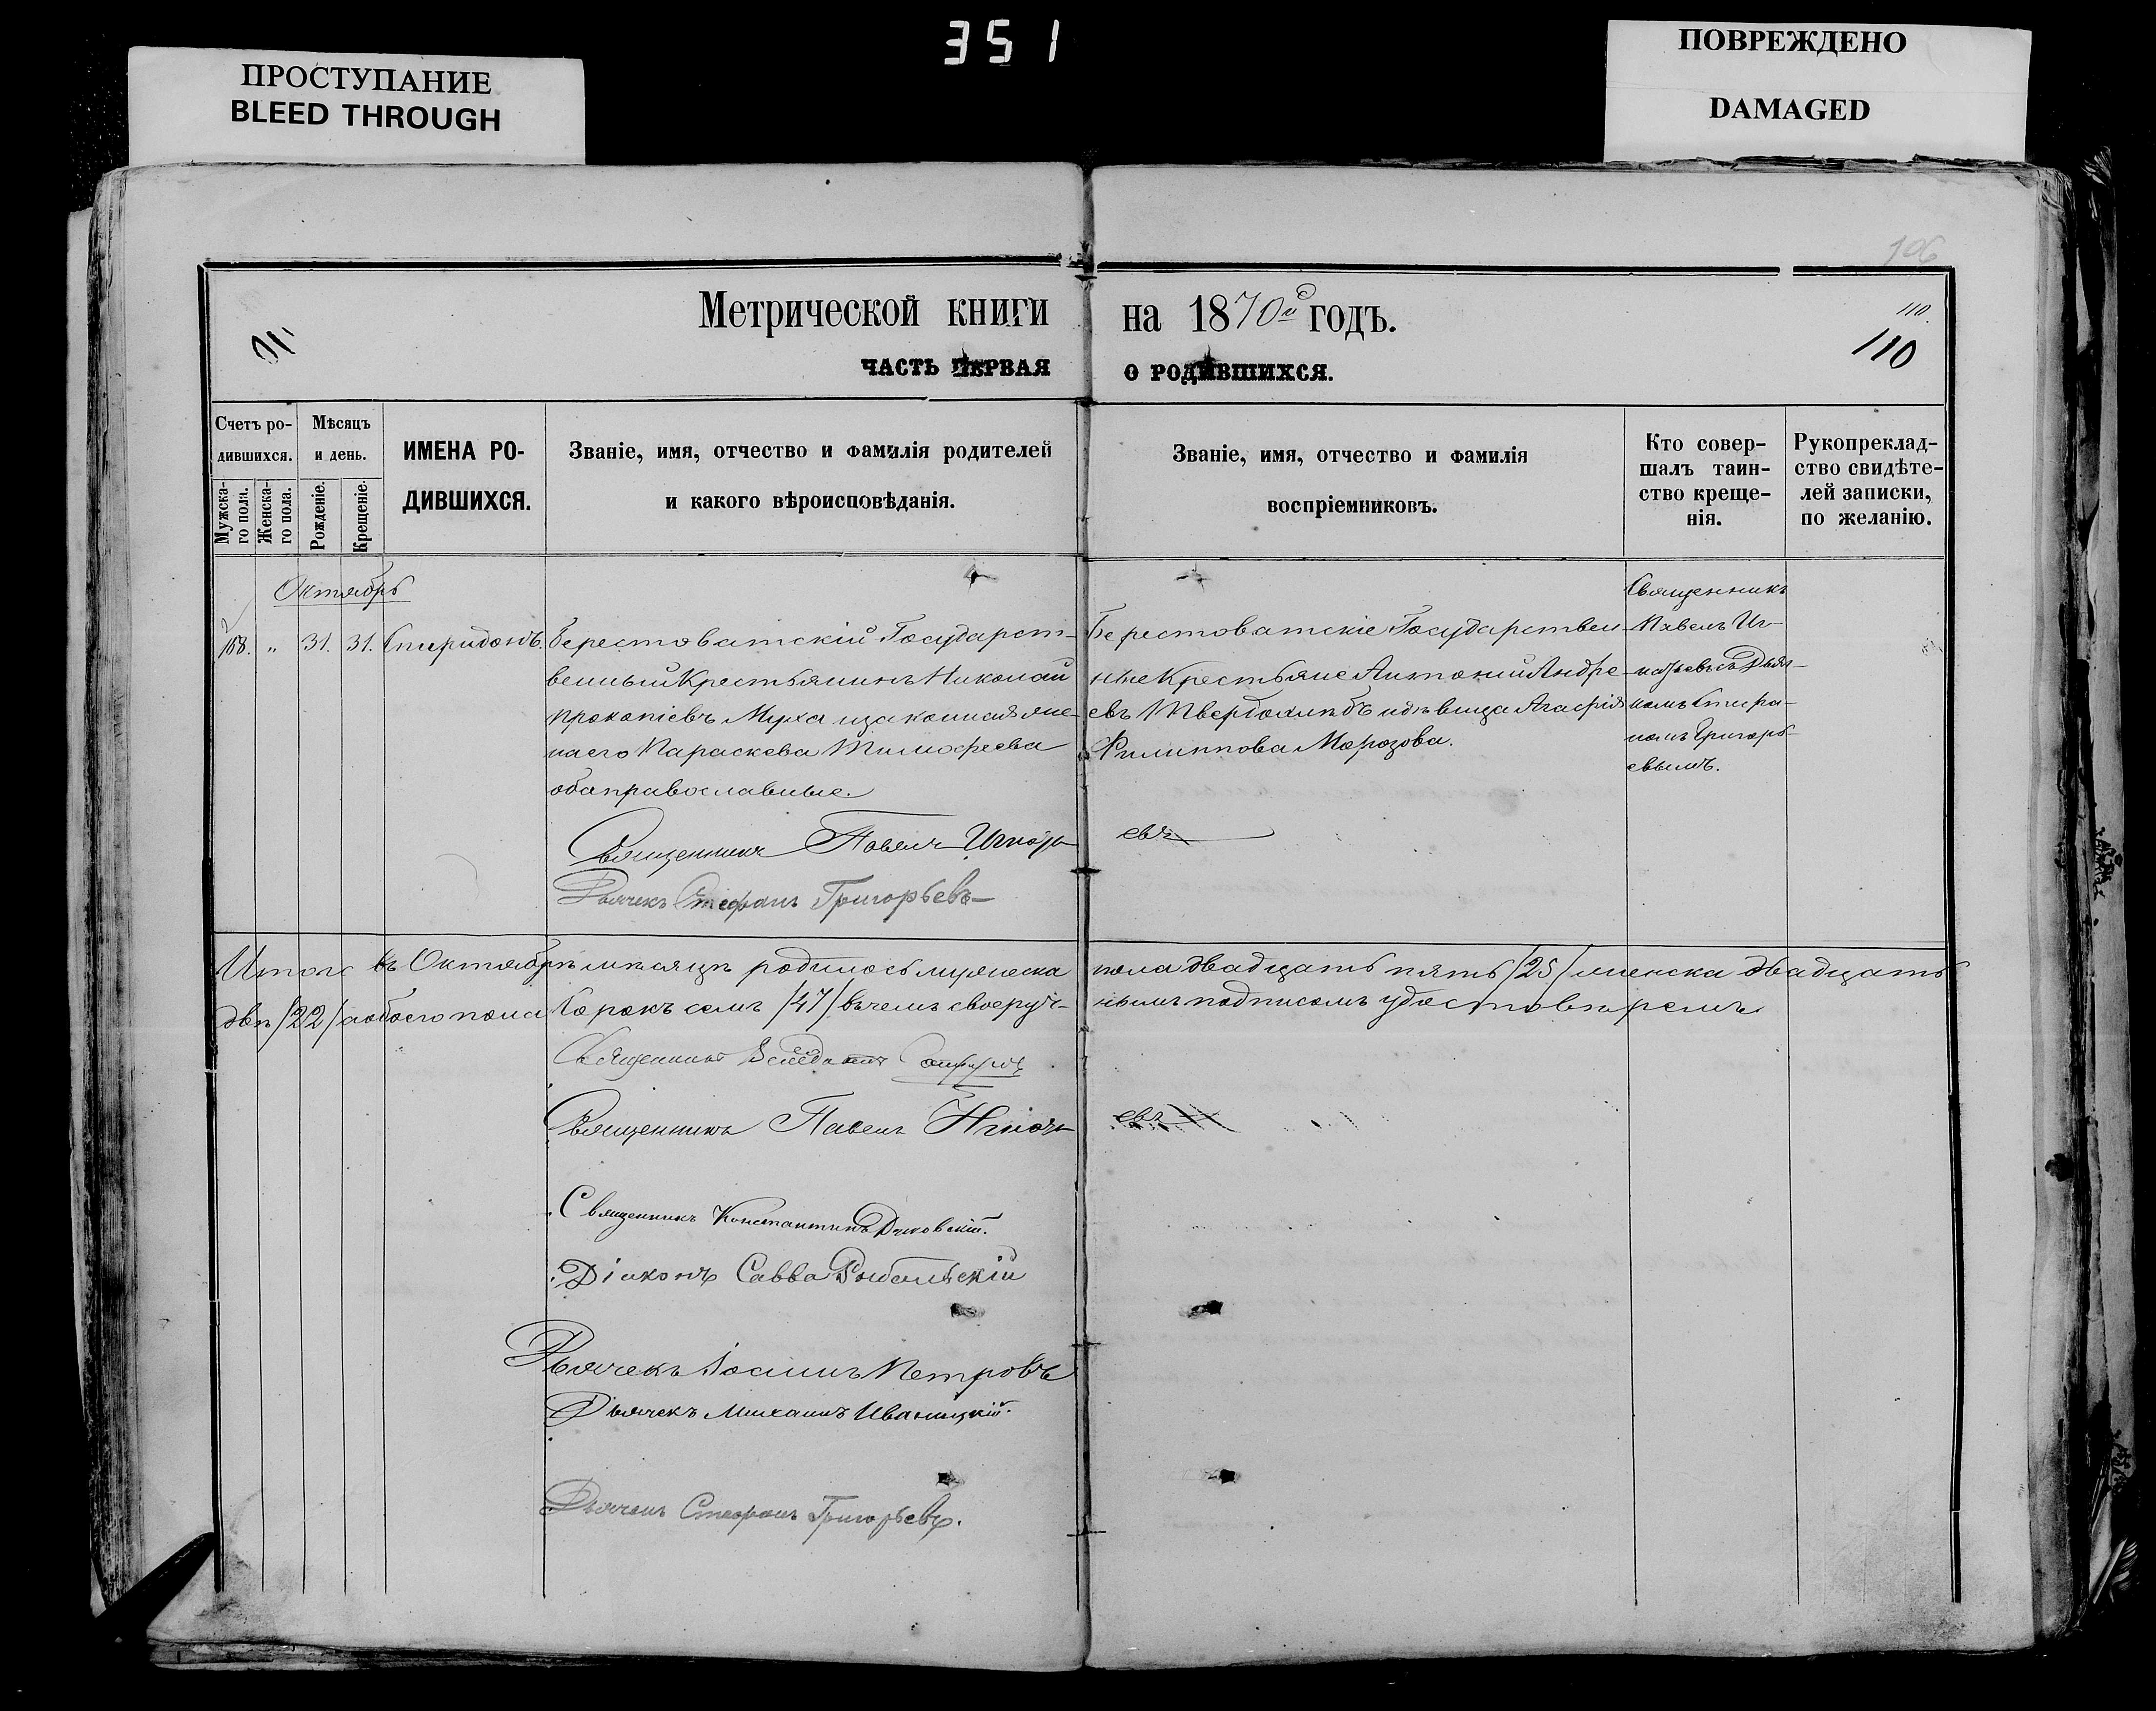 351
ПРОСТУПАНИЕ
BLEED THROUGH
ПОВРЕЖДЕНО
DAMAGED
106
Метрической книги на 1870й годъ.
110
110
ЧАСТЬ ПЕРВАЯ О РОДИВШИХСЯ.
Счетъ родившихся.
Мужскаго пола.
Женскаго пола.
Мѣсяцъ и день.
Рожденіе.
Крещеніе.
ИМЕНА РО-
ДИВШИХСЯ.
Званіе, имя, отчество и фамилія родителей
и какого вѣроисповѣданія.
Званіе, имя, отчество и фамилія
воспріемниковъ.
Кто совер-
шалъ таин-
ство креще-
нія.
Рукопреклад-
ство свидѣте-
лей записки,
по желанію.
Октябрь
168. „ 31. 31. Спиридонъ.
Берестоватскій Государст-
венный Крестьянинъ Николай
Прокопіевъ Муха и законная же-
на его Параскева Тимофеева
оба православные.
Берестоватскіе Государствен-
ные Крестьяне Антоній Андре-
евъ Твердохлѣбъ и дѣвица Агафія
Филиппова Морозова.
Священникъ
Павелъ Иг-
натьевъ съ Дьяч-
комъ Стефа-
номъ Григорь-
евымъ.
Священникъ Павелъ Игнатьевъ
Дьячекъ Стефанъ Григорьевъ
Итого въ Октябрѣ мѣсяцѣ родилось мужеска пола двадцать пять /25/ женска двадцать
двѣ /22/ а обоего пола сорокъ семь /47/ въ чемъ своеруч- нымъ подписомъ удостовѣряемъ
Священникъ
Священникъ Павелъ Игнатьевъ
Священникъ Константинъ
Діаконъ Савва
Дьячекъ Іоаннъ Петровъ
Дьячекъ Михаилъ Иваницкій.
Дьячекъ Стефанъ Григорьевъ.